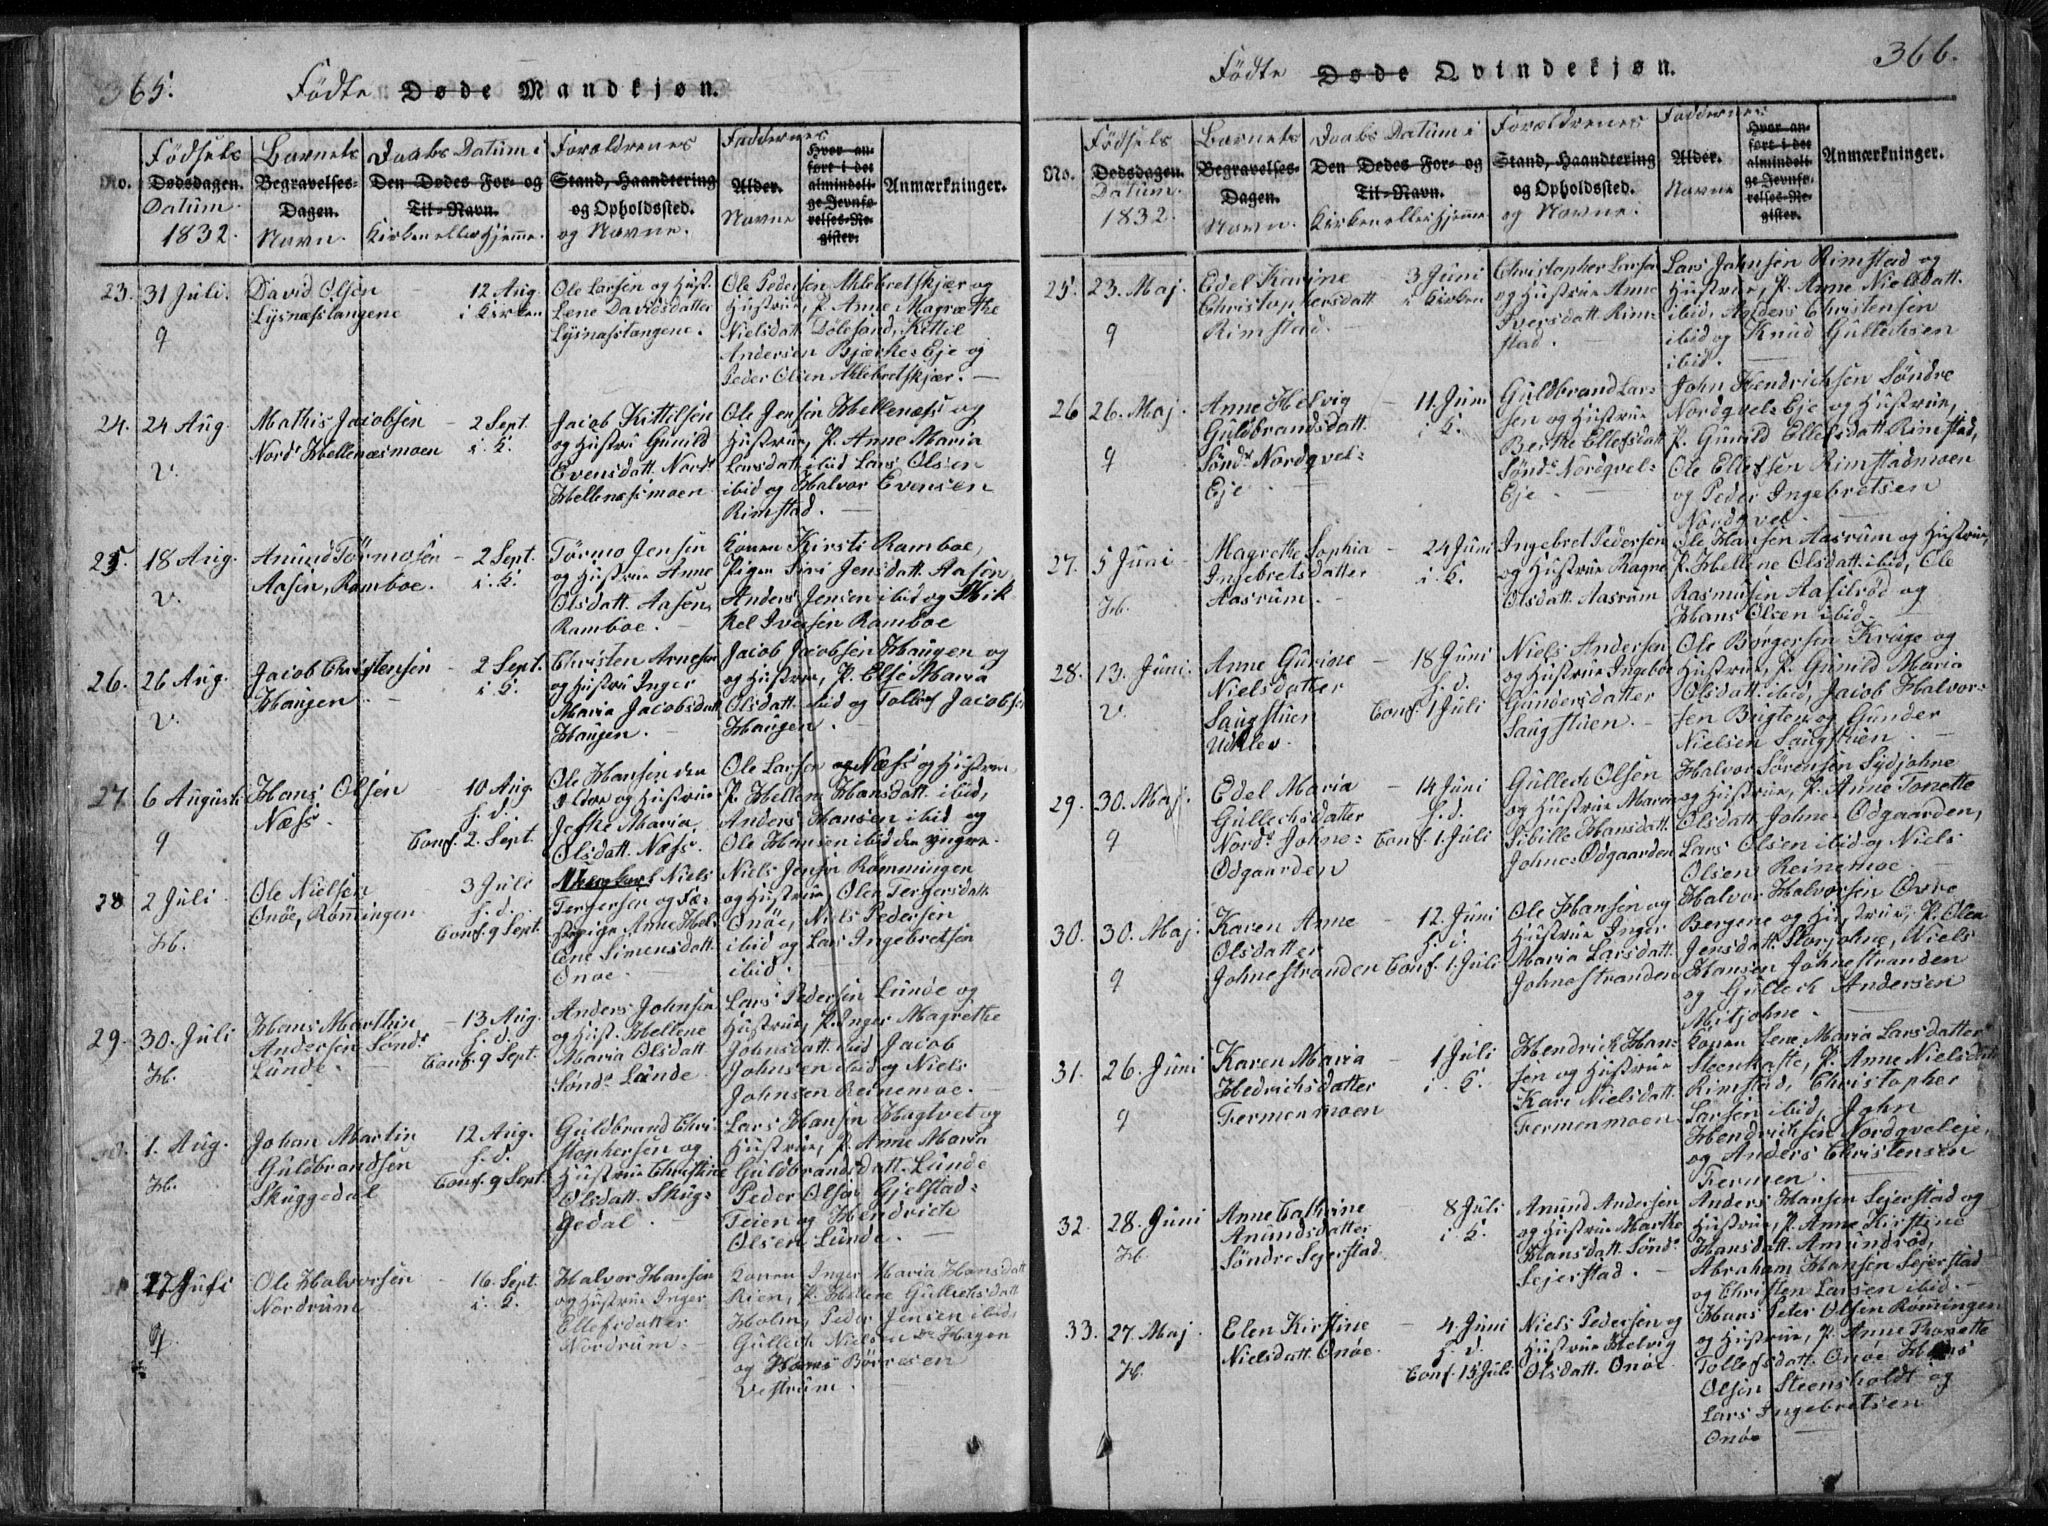 365. Födte Døde Mandkjøn.
No.
Födsels
Dødsdagen.
Datum
1832.
Barnets
Begravelses-
Dagen.
Navn.
Daabs Datum i
Den Dødes For- og
Til-Navn.
Kirken eller Hjemme.
Forældrenes
Stand, Haandtering
og Opholdssted.
og Navne.
Faddernes
Alder.
Navne
Hvor an-
ført i det
almindeli-
ge Jevnfø-
relses-Re-
gister.
Anmærkninger.
23. 31 Juli.
David Olsen
Lysnæstangene
12 Aug.
i Kirken
Ole Larsen og Hust.
Lene Davidsdatter
Lysnæstangene.
Ole Pedersen Ahlebretskjær og
Hustrue, P. Anne Magrethe
Nielsdatt. Dölesand, Kittil
Andersen Bjærkes Eje og
Peder Olsen Ahlebretskjær. —
24. 24 Aug.
v.
Mathis Jacobsen
Nordr Hellenæsmoen
- 2 Sept.
i. K.
Jacob Kittilsen
og Hustru Gunild
Evensdatt. Nordr
Hellenæsmoen
Ole Jensen Hellenæss og
Hustrue, P. Anne Maria
Larsdatt ibid Lars Olsen
ibid og Halvor Evensen
Rimstad. —
25. 18 Aug.
v.
Anund Törmosen
Aasen, Ramboe.
- 2 Sept.
i. K.
Törmo Jensen
og Hustrue Anne
Olsdatt. Aasen,
Ramboe. —
Konen Kirsti Ramboe,
Pigen Siri Jensdatt. Aasen,
Anders Jensen ibid og Mik
kel Iversen Ramboe
26. 26 Aug.
v.
Jacob Christensen
Haugen
- 2 Sept.
i. K.
Christen Arnesen
og Hustru Inger
Maria Jacobsdatt
Haugen. —
Jacob Jacobsen Haugen og
og Hustrue, P. Else Maria
Olsdatt. ibid og Tollef Jacobsen
Haugen. —
27. 6 August
Hans Olsen
Næss.
10 Aug.
h. d.
Conf. 2. Sept.
Ole Hansen den
ældre og Hustrue
Jefke Maria
Olsdatt. Næss.
Ole Larsen og Næss og Hustrue,
P. Hellene Hansdatt. ibid,
Anders Hansen ibid og
Ole Hansen ibid den yngre.
28 2 Juli
H.
Ole Nielsen
Onöe, Römingen
3 Juli
h. d.
Conf. 9 Sept.
Niels
Tergersen og Fæ-
stepige Anne Hel-
ene Simensdatt.
Onoe.
Niels Jensen Rømmingen
og Hustrue, Olea Tergersdatt.
Onöe, Niels Pedersen
ibid og Lars Ingebretsen
ibid.
29. 30. Juli
H.
Hans Marthin
Andersen Söndr
Lunde.
- 13 Aug.
h. d.
Conf. 9 Sept.
Anders Johnsen
og Hust. Hellene
Maria Olsdatt
Söndr Lunde
Lars Pedersen Lunde og
Hustrue, P. Inger Magrethe
Johnsdatt. ibid Jacob
Johnsen ibid og Niels
Johnsen Reinemoe.
30. 1. Aug.
H.
Johan Martin
Guldbrandsen
Skuggedal
12 Aug.
h. d.
Conf. 9 Sept.
Guldbrand Chri-
stophersen og
Hustrue Christine
Olsdatt. Skug-
gedal. —
Lars Hansen Hogtvet og
Hustrue, P. Anne Maria
Guldbrandsdatt. Lunde
Peder Olsen Gjelstad-
Teien og Hendrich
Olsen Lunde. —
17 Juli
Ole Halvorsen
Nordrum
- 16. Sept.
i. K.
Halvor Hansen
og Hustrue Inger
Ellefsdatter
Nordrum. —
Konen Inger Maria Hansdatt
Rien, P. Hellene Gullechsdatt
Holm, Peder Jensen ibid,
Gullech Nielsen Hagen
og Hans Börresen
Vestrum.
366.
Födte Døde Qvindekjøn.
No.
Födsels
Dødsdagen.
Datum.
1832.
Barnets
Begravelses-
Dagen.
Navn.
Daabs Datum i
Den Dødes For- og
Til-Navn.
Kirken eller Hjemme.
Forældrenes
Stand, Haandtering
og Opholdssted.
og Navne.
Faddernes
Alder.
Navne
Hvor an-
ført i det
almindeli-
ge Jevnfø-
relses-Re-
gister.
Anmærkninger.
25. 23. Maj.
Edel Karine
Christophersdatt.
Rimstad.
3 Juni
i Kirken
Christopher Larsen
og Hustrue Anne
Iversdatt. Rim-
stad. —
Lars Johnsen Rimstad og
Hustrue, P. Anne Nielsdatt.
ibid, Anders Christensen
ibid og Knud Gullichsen
ibid.
26 26. Maj.
Anne Helvig
Guldbrandsdatt.
Söndr Nordqvel-
Eje.
- 11. Juni
i. K.
Guldbrand Lar-
sen og Hustrue
Berthe Ellefsdatt
Söndr Nordqvel-
Eje. —
John Hendrichsen Söndre
Nordqvels Eje og Hustrue,
P. Gunild Ellefsdatt. Rimstad,
Ole Ellefsen Rimstadmoen
og Peder Ingebretsen
Nordqvel.
27. 5 Juni
H.
Magrethe Sophia
Ingebretsdatter
Aasrum. —
- 24 Juni
i. K.
Ingebret Pedersen
og Hustrue Ragne
Olsdatt. Aasrum
Ole Hansen Aasrum og Hustrue,
P. Hellene Olsdatt. ibid, Ole
Rasmusen Aasilröd og
Hans Olsen ibid. —
28. 13. Juni.
v.
Anne Gurine
Nielsdatter
Saugstuen
Udklev.
- 18 Juni
h. d.
Conf. 1 Juli
Niels Andersen
og Hustrue Ingeboe
Gundersdatter
Saugstuen. —
Ole Börgersen Kruge og
Hustrue, P. Gunild Maria
Olsdatt. ibid, Jacob Halvor-
sen Bugten og Gunder
Nielsen Saugstuen. —
29. 30. Maj.
Edel Maria
Gullechsdatter
Nordr Johne-
Odgaarden
- 14 Juni
h. d.
Conf. 1. Juli
Gullech Olsen
og Hustrue Maren
Sibille Hansdatt.
Johne-Odgaarden
Halvor Sörensen Sydjohne
og Hustrue, P. Anne Tonette
Olsdatt. Johne-Odgaarden,
Lars Olsen ibid og Niels
Olsen Reinemoe. —
30. 30. Maj.
Karen Anne
Olsdatter
Johnestranden
- 12. Juni
h. d.
Conf. 1. Juli
Ole Hansen og
Hustrue Inger
Maria Larsdatt.
Johnestranden
Halvor Halvorsen Övre
Bergene og Hustrue, P. Olea
Jensdatt. Storjohne, Niels
Hansen Johnestranden
og Gullech Andersen
Mitjohne. —
31. 26. Juni
Karen Maria
Hedrichsdatter
Fermenmoen
- 1. Juli
i. K.
Hendrich Han-
sen og Hustrue
Kari Nielsdatt.
Fermenmoen
Konen Lene Maria Larsdatter
Steenhafte, P. Anne Nielsdatt
Rimstad, Christopher
Larsen ibid, John
Hendrichsen Nordqveleje
og Anders Christensen
Fermen. —
32. 28. Juni
H.
Anne Cathrine
Anundsdatter
Söndre Sejerstad
8 Juli
i. K.
Anund Andersen
og Hustrue Marthe
Hansdatt. Söndr
Sejerstad. —
Anders Hansen Sejerstad og
Hustrue, P. Anne Kirstine
Hansdatt. Amundröd,
Abraham Hansen Sejerstad
og Christen Larsen ibid. —
33. 27. Maj.
H.
Elen Kirstine
Nielsdatt. Onöe.
- 4. Juni
h. d.
Conf. 15 Juli
Niels Pedersen og
Hustrue Helvig
Olsdatt. Onöe
Hans Peter Olsen Römingen
og Hustrue, P. Anne Thonette
Tollefsdatt. Onöe Hans
Olsen Steensholdt og
Lars Ingebretsen
Onöe